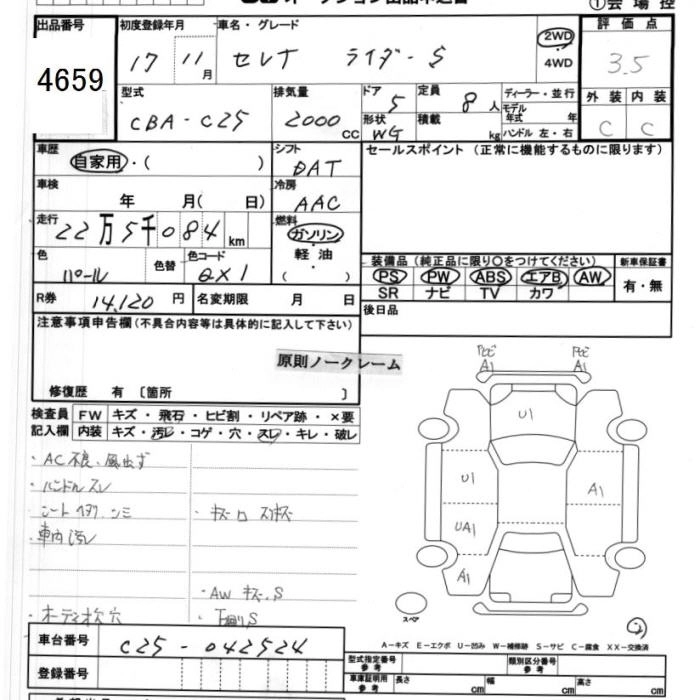 ①会場控
出品番号 4659
初度登録年月 17 11月
車名・グレード セレナ ライダーS
2WD
4WD
評価点 3.5
型式 CBA-C25
排気量 2000 cc
ドア 5
形状 WG
定員 8 人
積載 kg
ディーラー・並行
モデル年式 年
ハンドル 左・右
外装 内装
C C
車歴 自家用・( )
シフト DAT
セールスポイント (正常に機能するものに限ります)
車検 年 月( 日)
冷房 AAC
走行 22万5千084 km
燃料 ガソリン
軽油
( )
色 パール
色替
色コード QX1
装備品 (純正品に限り○をつけてください)
PS PW ABS エアB AW
SR ナビ TV カワ
新車保証書
有・無
R券 14,120 円
名変期限 月 日
後日品
注意事項申告欄(不具合内容等は具体的に記入して下さい)
原則ノークレーム
修復歴 有 〔箇所 〕
検査員記入欄
FW キズ・飛石・ヒビ割・リペア跡・×要
内装 キズ・汚レ・コゲ・穴・スレ・キレ・破レ
・AC不良、風出ず
・ハンドルスレ
・車内汚レ
・AW キズ.S
・オーディオ穴
・下廻りS
A1 A1
U1
U1
A1
UA1
A1
スペア
②
A-キズ E-エクボ U-凹み W-補修跡 S-サビ C-腐食 XX-交換済
車台番号 C25-042524
登録番号
型式指定番号 参考
類別区分番号 参考
車庫証明用 参考
長さ cm 幅 cm 高さ cm